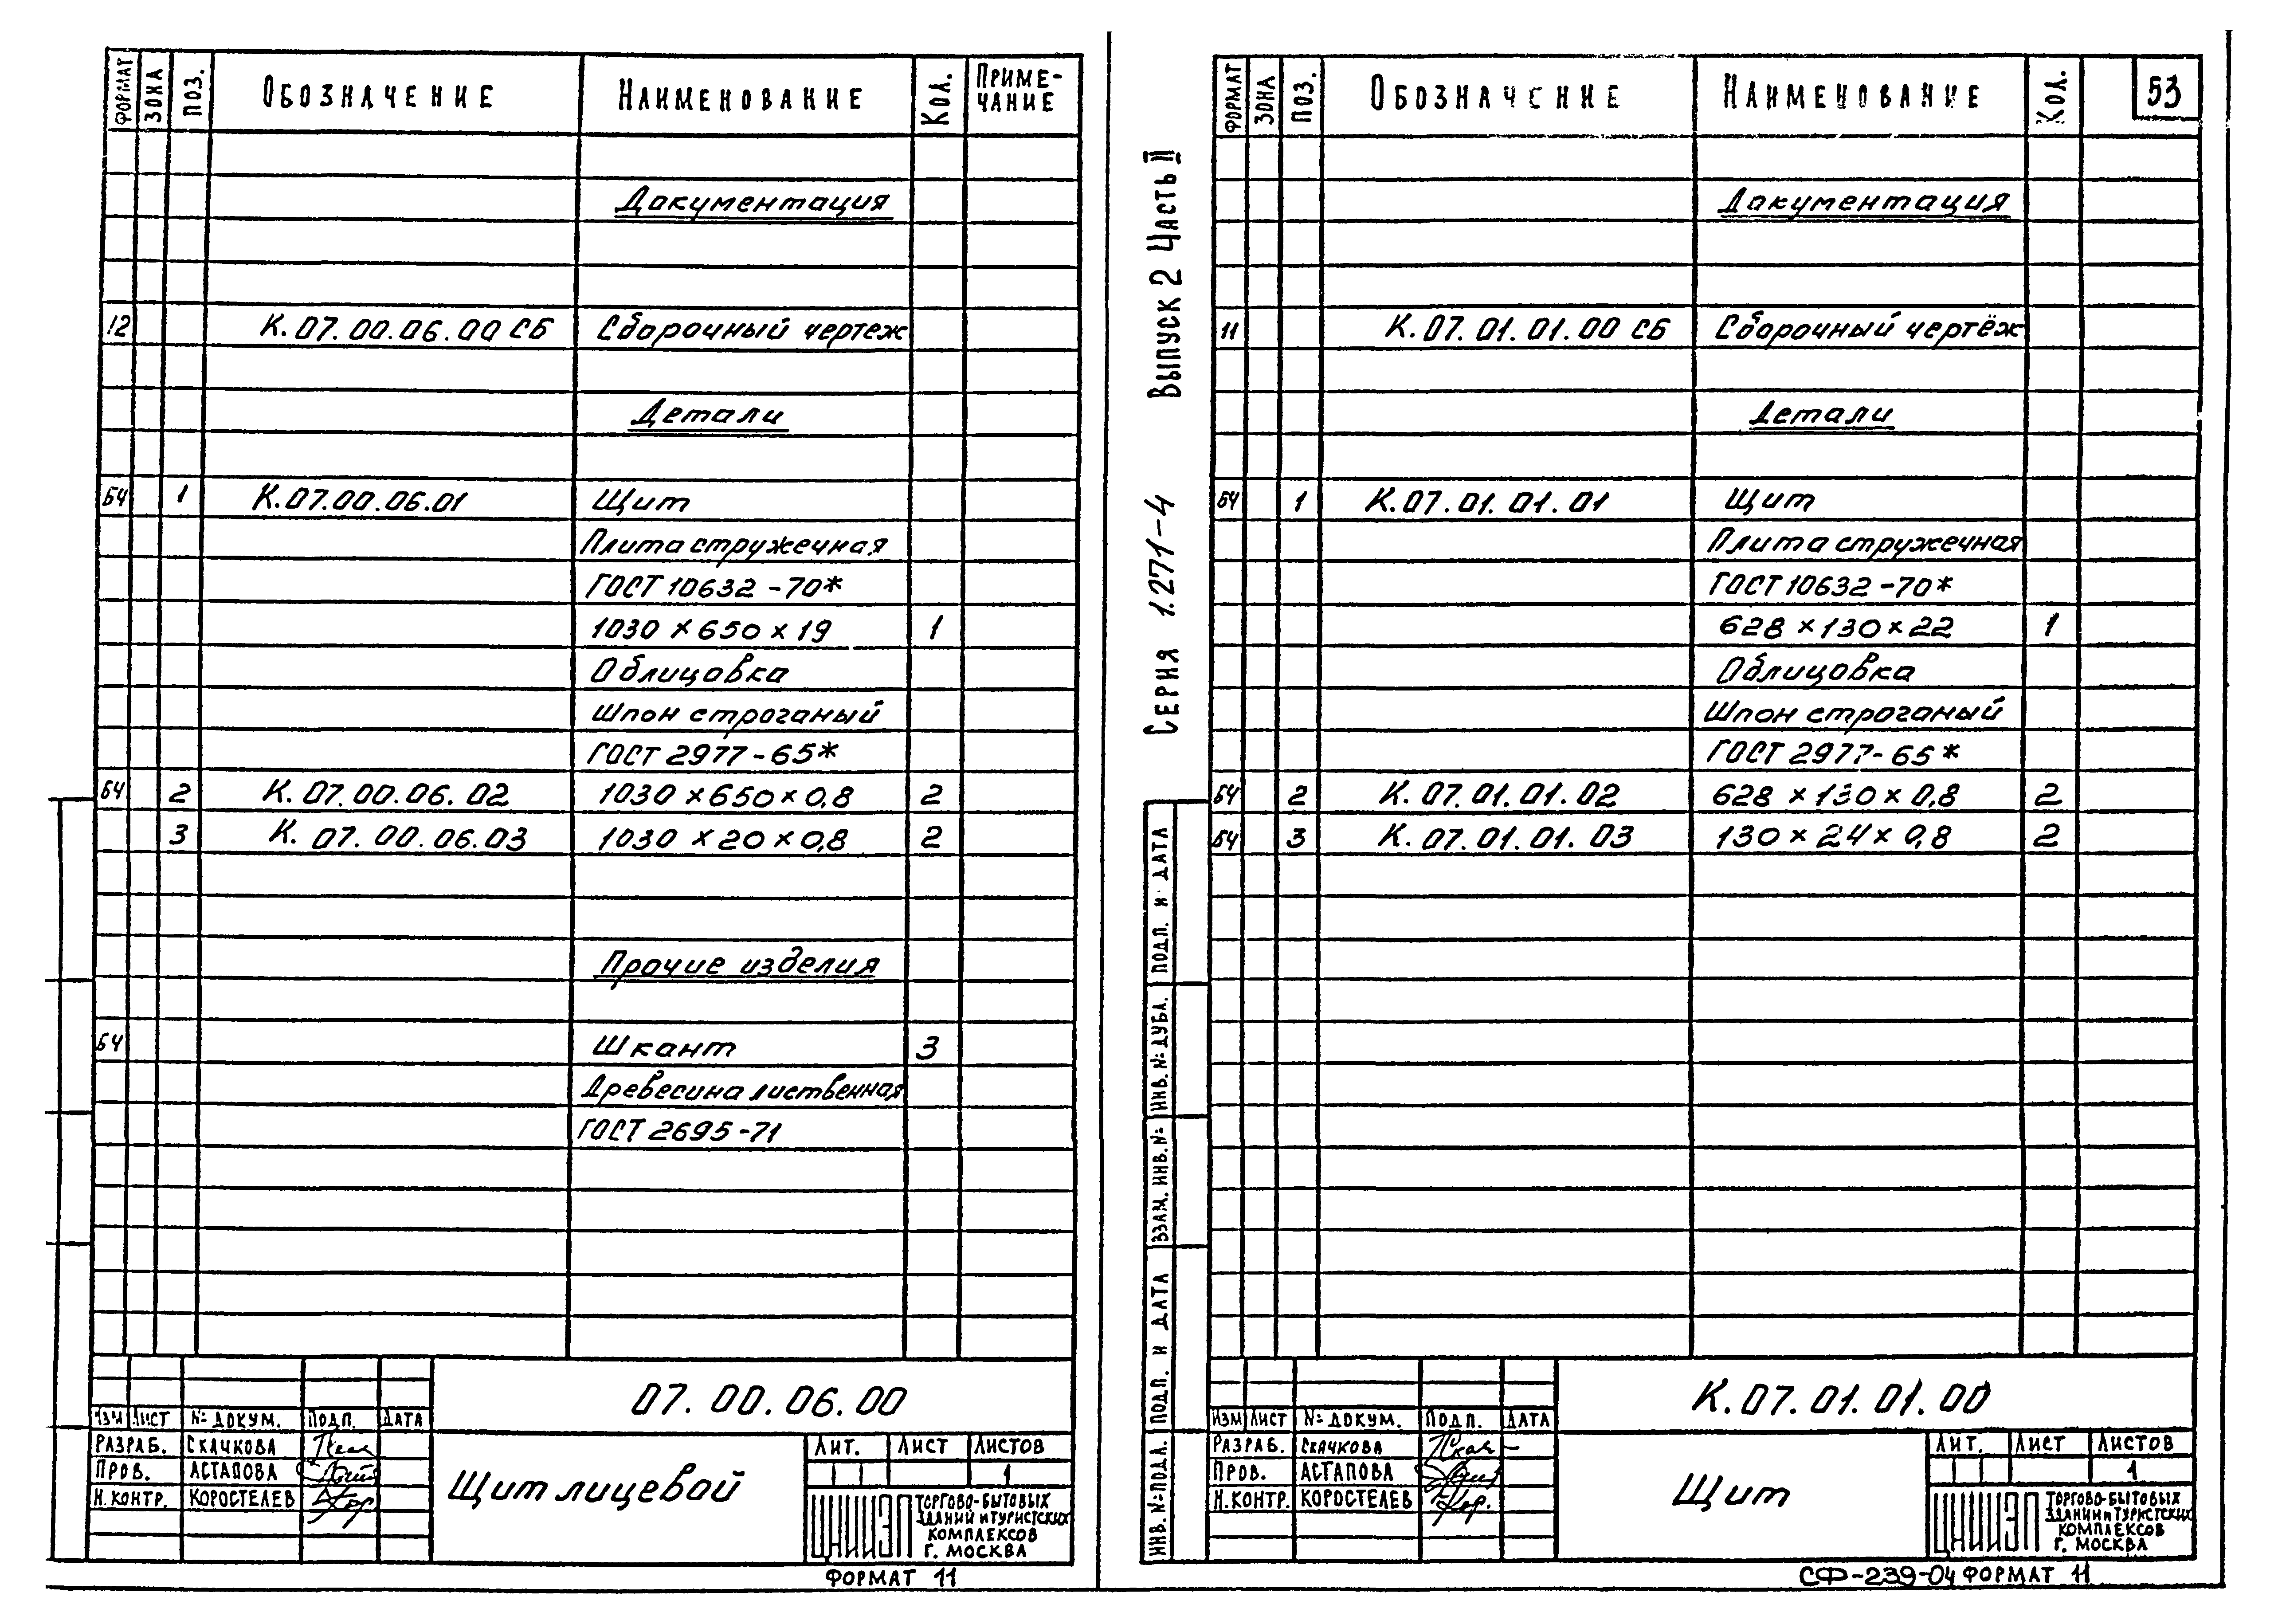 ФОРМАТ ЗОНА ПОЗ. ОБОЗНАЧЕНИЕ НАИМЕНОВАНИЕ КОЛ. ПРИМЕ-
ЧАНИЕ
Документация
12 К.07.00.06.00 СБ Сборочный чертеж
Детали
БЧ 1 К.07.00.06.01 Щит
Плита стружечная
ГОСТ 10632-70*
1030 × 650 × 19 1
Облицовка
Шпон строганый
ГОСТ 2977-65*
БЧ 2 К.07.00.06.02 1030 × 650 × 0,8 2
3 К.07.00.06.03 1030 × 20 × 0,8 2
Прочие изделия
БЧ Шкант 3
Древесина лиственная
ГОСТ 2695-71
07.00.06.00
ИЗМ ЛИСТ № ДОКУМ. ПОДП. ДАТА
РАЗРАБ. СКАЧКОВА
ПРОВ. АСТАПОВА
Н.КОНТР. КОРОСТЕЛЕВ
Щит лицевой
ЛИТ. ЛИСТ ЛИСТОВ
1
ЦНИИЭП ТОРГОВО-БЫТОВЫХ
ЗДАНИЙ И ТУРИСТСКИХ
КОМПЛЕКСОВ
Г. МОСКВА
ФОРМАТ 11
СЕРИЯ 1.271-4 ВЫПУСК 2 ЧАСТЬ II
ФОРМАТ ЗОНА ПОЗ. ОБОЗНАЧЕНИЕ НАИМЕНОВАНИЕ КОЛ. 53
Документация
11 К.07.01.01.00 СБ Сборочный чертёж
Детали
БЧ 1 К.07.01.01.01 Щит
Плита стружечная
ГОСТ 10632-70*
628 × 130 × 22 1
Облицовка
Шпон строганый
ГОСТ 2977-65*
БЧ 2 К.07.01.01.02 628 × 130 × 0,8 2
БЧ 3 К.07.01.01.03 130 × 24 × 0,8 2
ИНВ.№ ПОДЛ. ПОДП. И ДАТА ВЗАМ. ИНВ.№ ИНВ.№ ДУБЛ. ПОДП. И ДАТА
К.07.01.01.00
ИЗМ ЛИСТ № ДОКУМ. ПОДП. ДАТА
РАЗРАБ. СКАЧКОВА
ПРОВ. АСТАПОВА
Н.КОНТР. КОРОСТЕЛЕВ
Щит
ЛИТ. ЛИСТ ЛИСТОВ
1
ЦНИИЭП ТОРГОВО-БЫТОВЫХ
ЗДАНИЙ И ТУРИСТСКИХ
КОМПЛЕКСОВ
Г. МОСКВА
СФ-239-04 ФОРМАТ 11